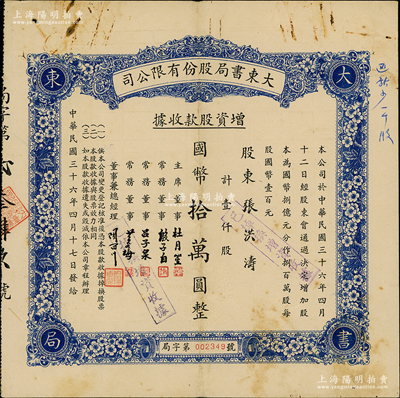 上海陽明拍賣
www.ymauction.com
大東書局股份有限公司
大
東
書
局
增資股款收據
本公司於中華民國三十六年四月
十二日經股東會通過決定增加股
本為國幣捌億元分作捌百萬股每
股國幣壹百元
股東張洪濤
計壹仟股
國幣拾萬圓整
主席董事 杜月笙
常務董事 殷子白
常務董事
董事兼總經理
俟本公司變更登記核准後憑本股款收據掉換股票
本股款收據與股票效力相同
如本股款收據遺失或毀滅依本公司章程辦理
中華民國三十六年四月十七日發給
局字第002349號